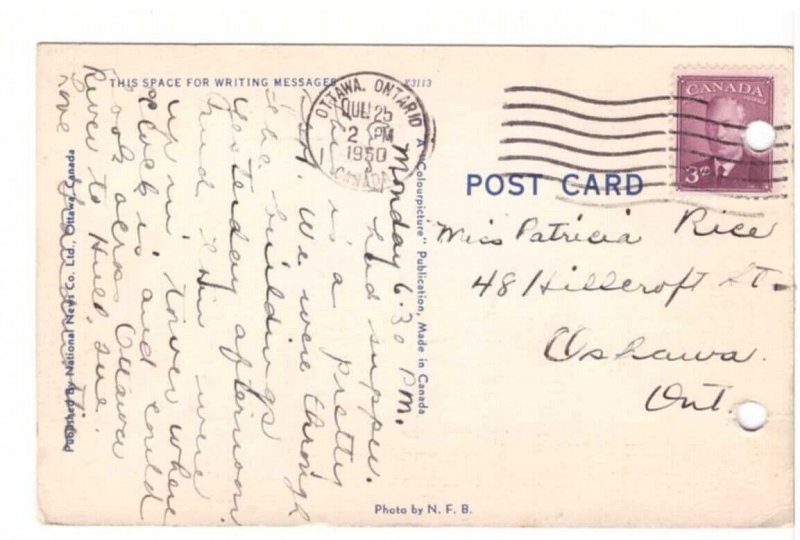 THIS SPACE FOR WRITING MESSAGES
K3113
OTTAWA, ONTARIO
JUL 25
2 PM
1950
CANADA
CANADA
POSTES POSTAGE
3¢
POST CARD
Miss Patricia Rice
48 Hillcroft St.
Oshawa.
Ont.
A "Colourpicture" Publication, Made in Canada
Monday 6.30 P.M.
had supper.
This is a pretty
spot. We were through
the buildings
yesterday afternoon
and then were
up in tower where
clock is and could
look across Ottawa
River to Hull, Que.
Love
Published by National News Co. Ltd., Ottawa, Canada
Photo by N. F. B.